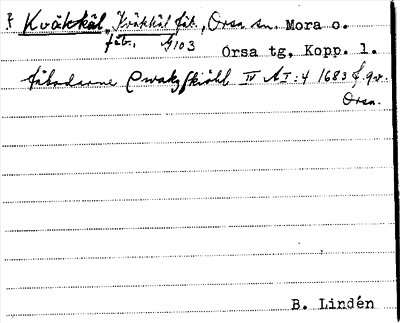 Kväkkäl, Kväkkäl fäb., Orsa sn. Mora o.
fäb. A103 Orsa tg, Kopp. l.
fäbodarne Qwakzskiähl IV AI:4 1683 f. 9v.
Orsa.
B. Lindén